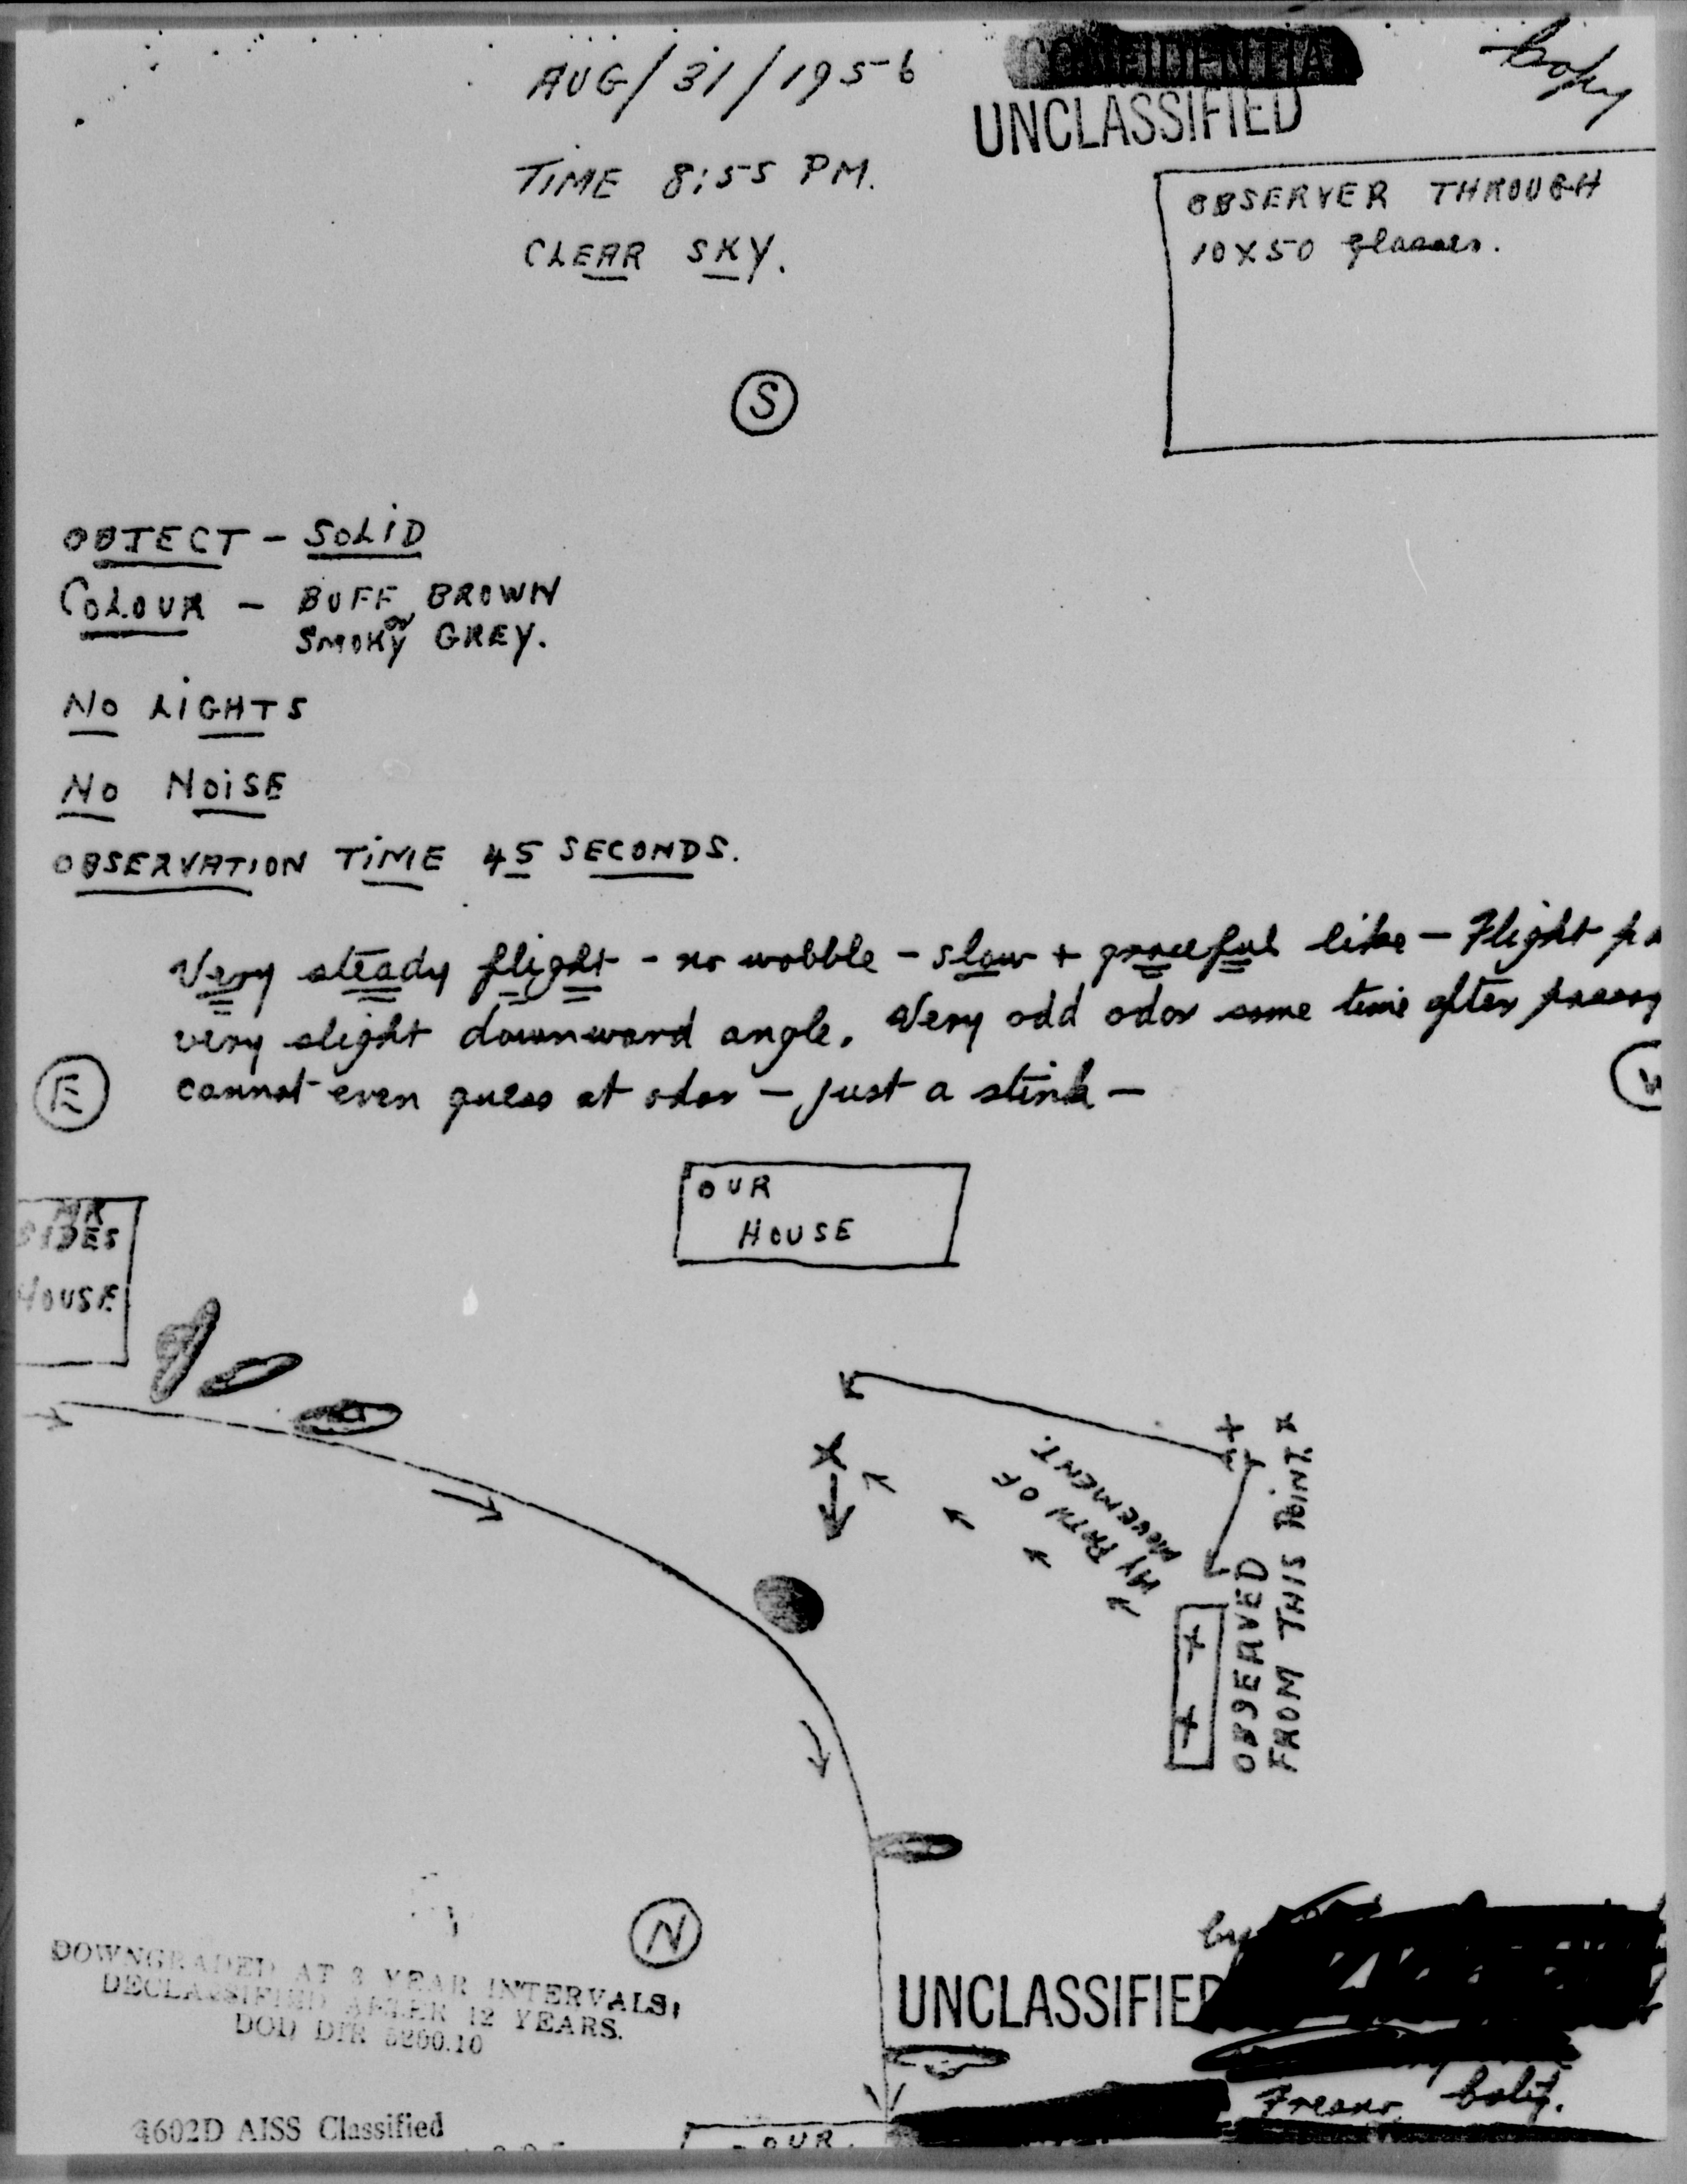 AUG/31/1956
CONFIDENTIAL
UNCLASSIFIED
Copy
TIME 8:55 PM.
CLEAR SKY.
OBSERVER THROUGH
10X50 glasses.
S
OBJECT - SOLID
COLOUR - BUFF BROWN
or
SMOKY GREY.
NO LIGHTS
NO NOISE
OBSERVATION TIME 45 SECONDS.
Very steady flight - no wobble - slow + graceful like - Flight
very slight downward angle. Very odd odor some time after
cannot even guess at odor - just a stink -
E
W
OUR
HOUSE
MR
SIDES
HOUSE
X
MY PATH OF
MOVEMENT.
OBSERVED
FROM THIS POINT X
N
DOWNGRADED AT 3 YEAR INTERVALS;
DECLASSIFIED AFTER 12 YEARS.
DOD DIR 5200.10
UNCLASSIFIED
by
Fresno, Calif.
4602D AISS Classified
OUR